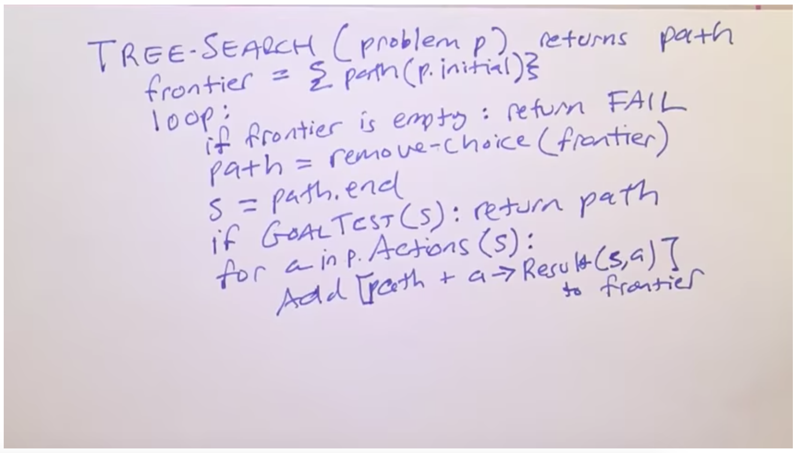 TREE-SEARCH (problem p) returns path
frontier = { path(p.initial)}
loop:
if frontier is empty: return FAIL
path = remove-choice(frontier)
s = path.end
if GOALTEST(s): return path
for a in p.Actions(s):
Add [path + a→Result(s,a)]
to frontier